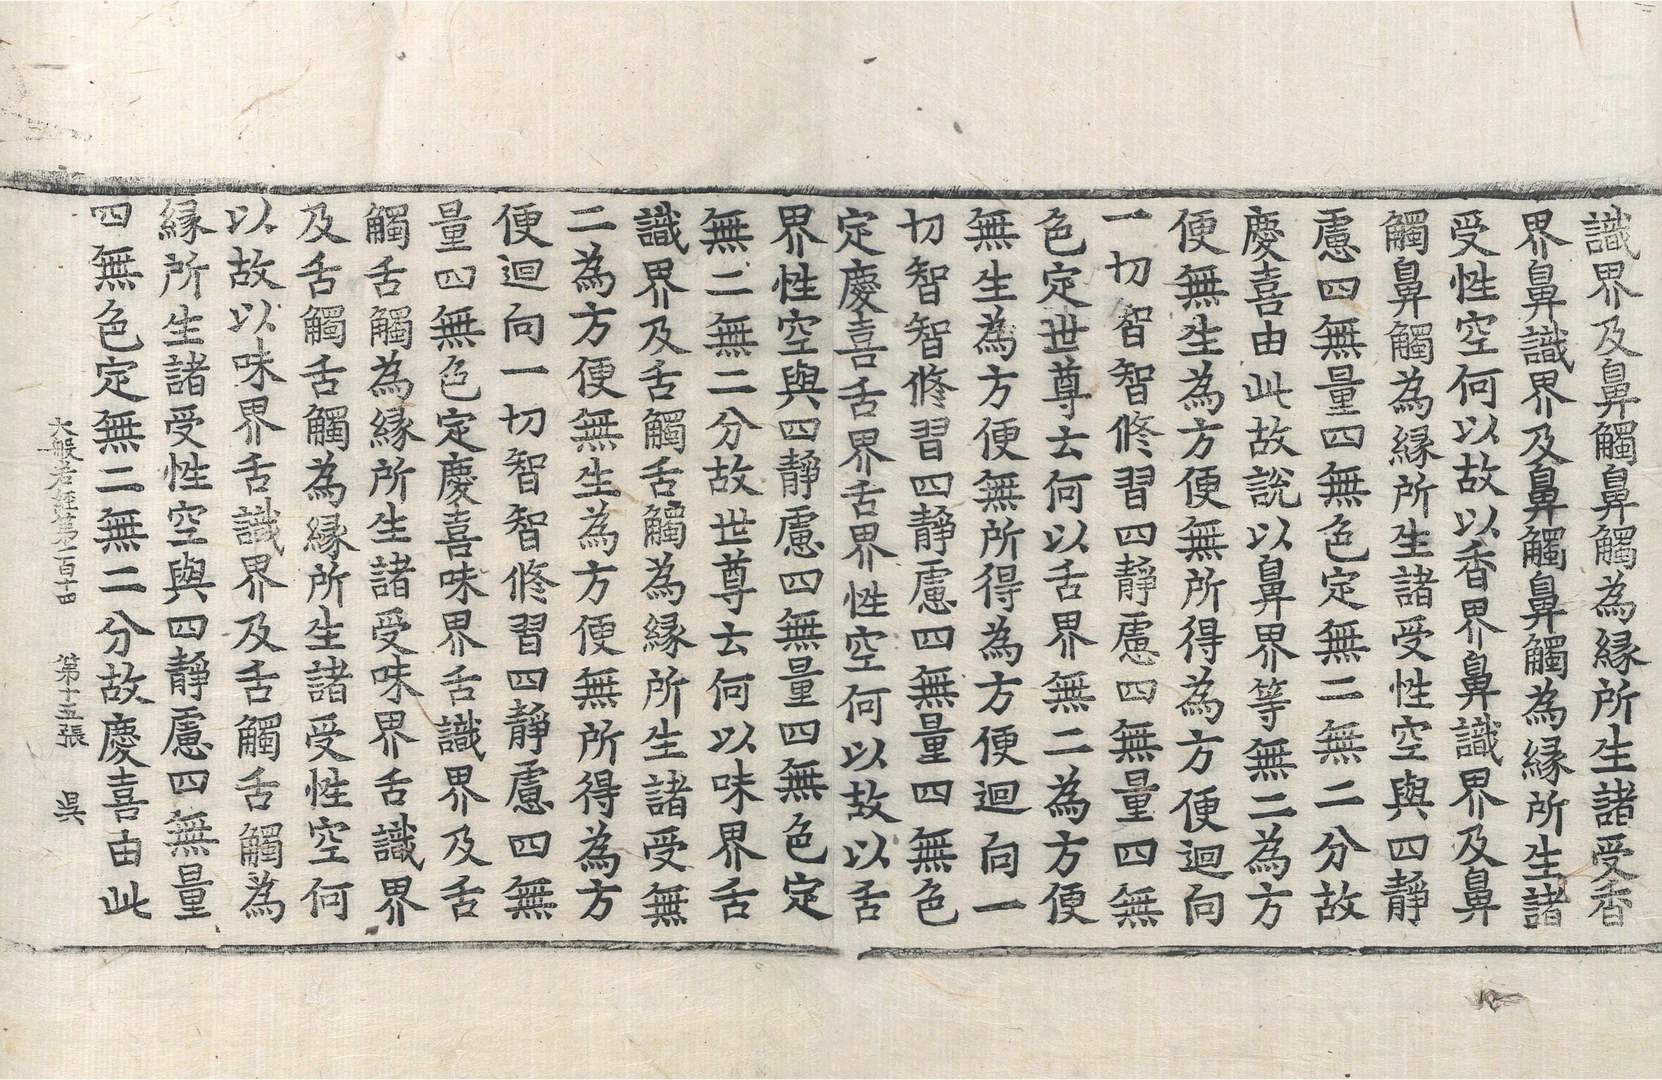 識界及鼻觸鼻觸為緣所生諸受香
界鼻識界及鼻觸鼻觸為緣所生諸
受性空何以故以香界鼻識界及鼻
觸鼻觸為緣所生諸受性空與四靜
慮四無量四無色定無二無二分故
慶喜由此故說以鼻界等無二為方
便無生為方便無所得為方便迴向
一切智智修習四靜慮四無量四無
色定世尊云何以舌界無二為方便
無生為方便無所得為方便迴向一
切智智修習四靜慮四無量四無色
定慶喜舌界舌界性空何以故以舌
界性空與四靜慮四無量四無色定
無二無二分故世尊云何以味界舌
識界及舌觸舌觸為緣所生諸受無
二為方便無生為方便無所得為方
便迴向一切智智修習四靜慮四無
量四無色定慶喜味界舌識界及舌
觸舌觸為緣所生諸受味界舌識界
及舌觸舌觸為緣所生諸受性空何
以故以味界舌識界及舌觸舌觸為
緣所生諸受性空與四靜慮四無量
四無色定無二無二分故慶喜由此
大般若經第一百十四 第十五張 吳